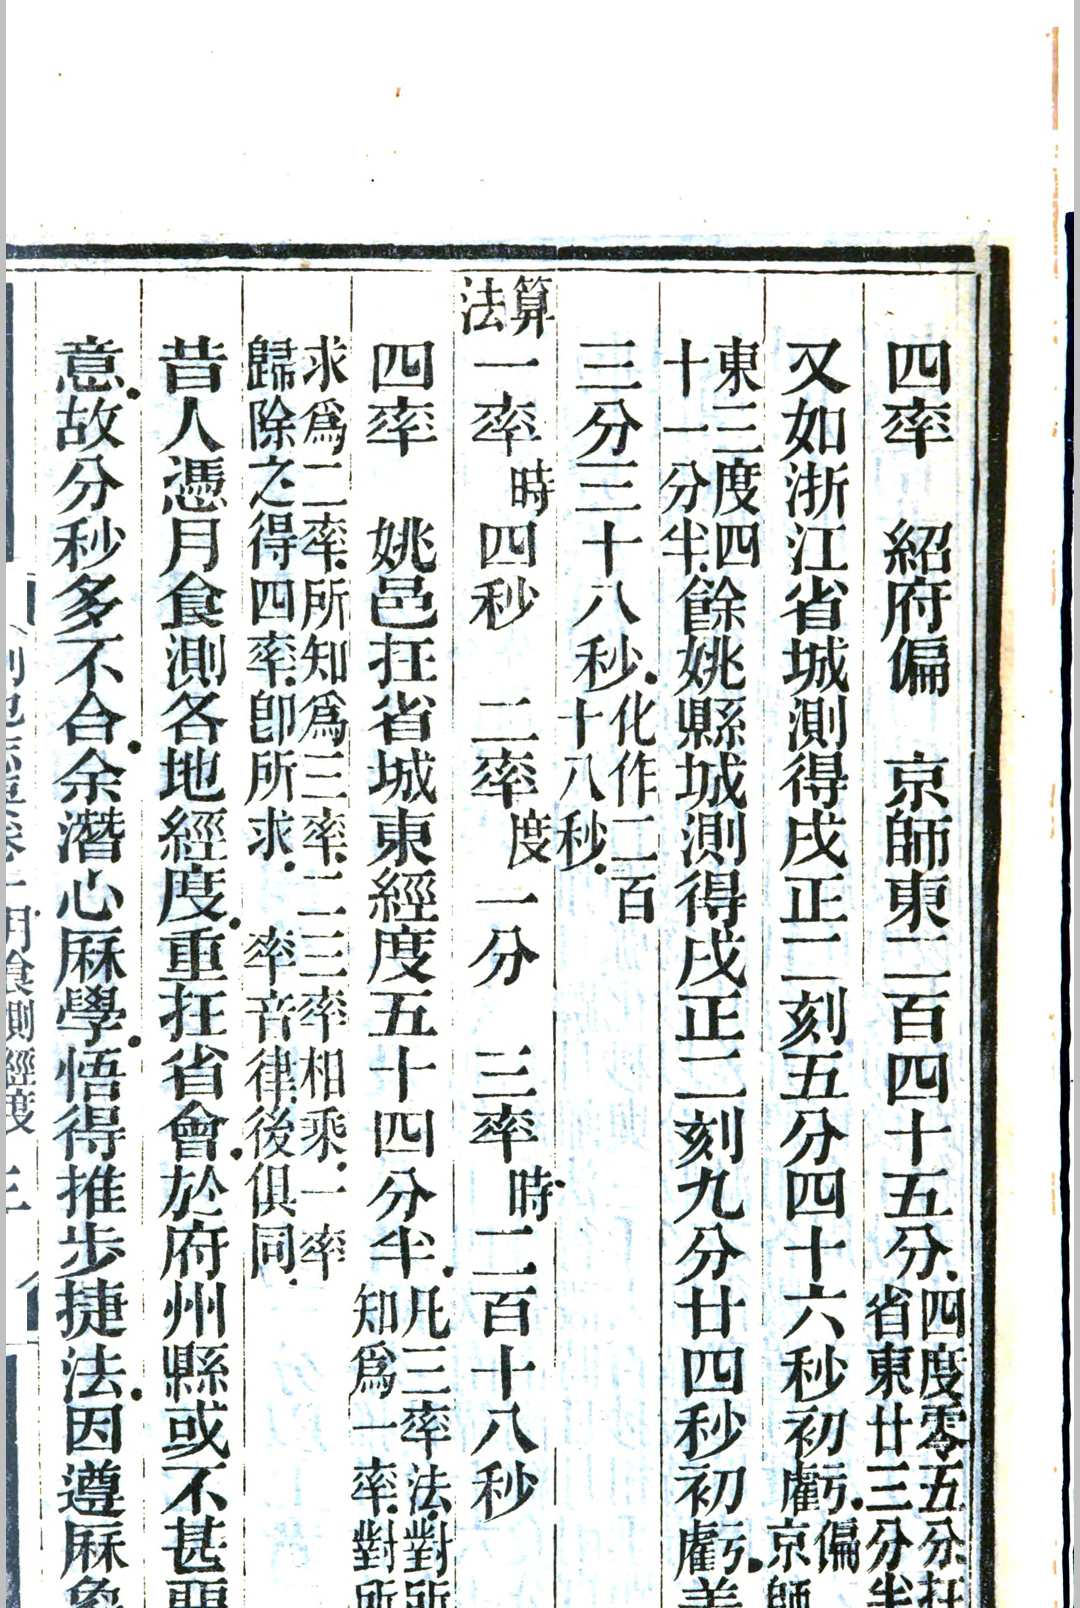 四率　紹府偏　京師東二百四十五分四度零五分扗省東廿三分半
又如浙江省城測得戌正二刻五分四十六秒初虧偏京師
東三度四十一分半餘姚縣城測得戌正二刻九分廿四秒初虧差
三分三十八秒化作二百十八秒
算法一率時四秒　二率度一分　三率時二百十八秒
四率　姚邑扗省城東經度五十四分半凡三率法對所知爲一率對所
求爲二率所知爲三率二三率相乘一率歸除之得四率卽所求　率音律後俱同
昔人憑月食測各地經度重扗省會於府州縣或不甚
意故分秒多不合余潛心厤學悟得推步捷法因遵厤象
月食測經度　三